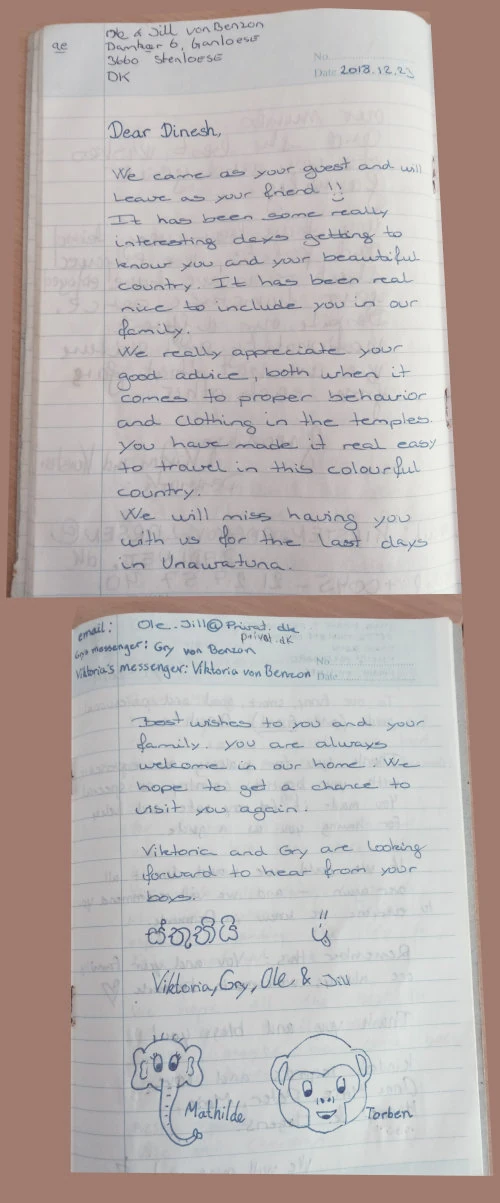 Ole & Jill von Benzon
Damhør 6, Ganloese
3660 Stenloese
DK
No.
Date 2018.12.23
Dear Dinesh,
We came as your guest and will
leave as your friend !!
It has been some really
interesting days getting to
know you and your beautiful
country. It has been real
nice to include you in our
family.
We really appreciate your
good advice, both when it
comes to proper behavior
and clothing in the temples.
You have made it real easy
to travel in this colourful
country.
We will miss having you
with us for the last days
in Unawatuna.
email: Ole.Jill@Privat.dk
privat.dk
Gry's messenger: Gry von Benzon
Viktoria's messenger: Viktoria von Benzon
No.
Date
Best wishes to you and your
family. You are always
welcome in our home. We
hope to get a chance to
visit you again.
Viktoria and Gry are looking
forward to hear from your
boys.
ස්තූතියි
Viktoria, Gry, Ole & Jill
Mathilde
Torben